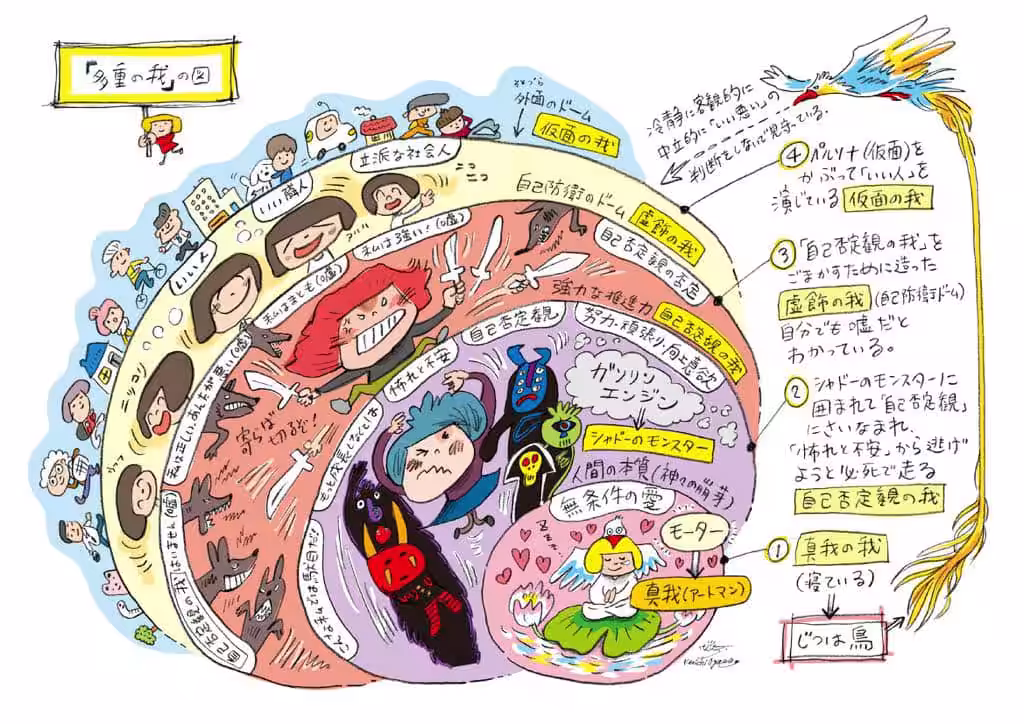 「多重の我」の図
そとづら
外面のドーム
仮面の我
立派な社会人
いい隣人
いい人
ニコニコ
ハハハ
ニッコリ
うふっ
自己防衛のドーム
虚飾の我
自己否定観の否定
私は強い!(嘘)
私はまとも(嘘)
私は正しい、あんたが悪い(嘘)
自己否定観の我はいません(嘘)
寄らば切るぞ!
強力な推進力
自己否定観の我
自己否定観
努力・頑張り・向上意欲
怖れと不安
もっと成長しなくては
こんな私では駄目だ
ガソリン
エンジン
シャドーのモンスター
人間の本質(神々の萌芽)
無条件の愛
モーター
真我(アートマン)
冷静に客観的に
中立的に「いい悪い」の
判断をしないで見守っている。
④ペルソナ(仮面)を
かぶって「いい人」を
演じている 仮面の我
③「自己否定観の我」を
ごまかすために造った
虚飾の我(自己防衛ドーム)
自分でも嘘だと
わかっている。
②シャドーのモンスターに
囲まれて「自己否定観」
にさいなまれ、
「怖れと不安」から逃げ
ようと必死で走る
自己否定観の我
①真我の我
(寝ている)
じつは鳥